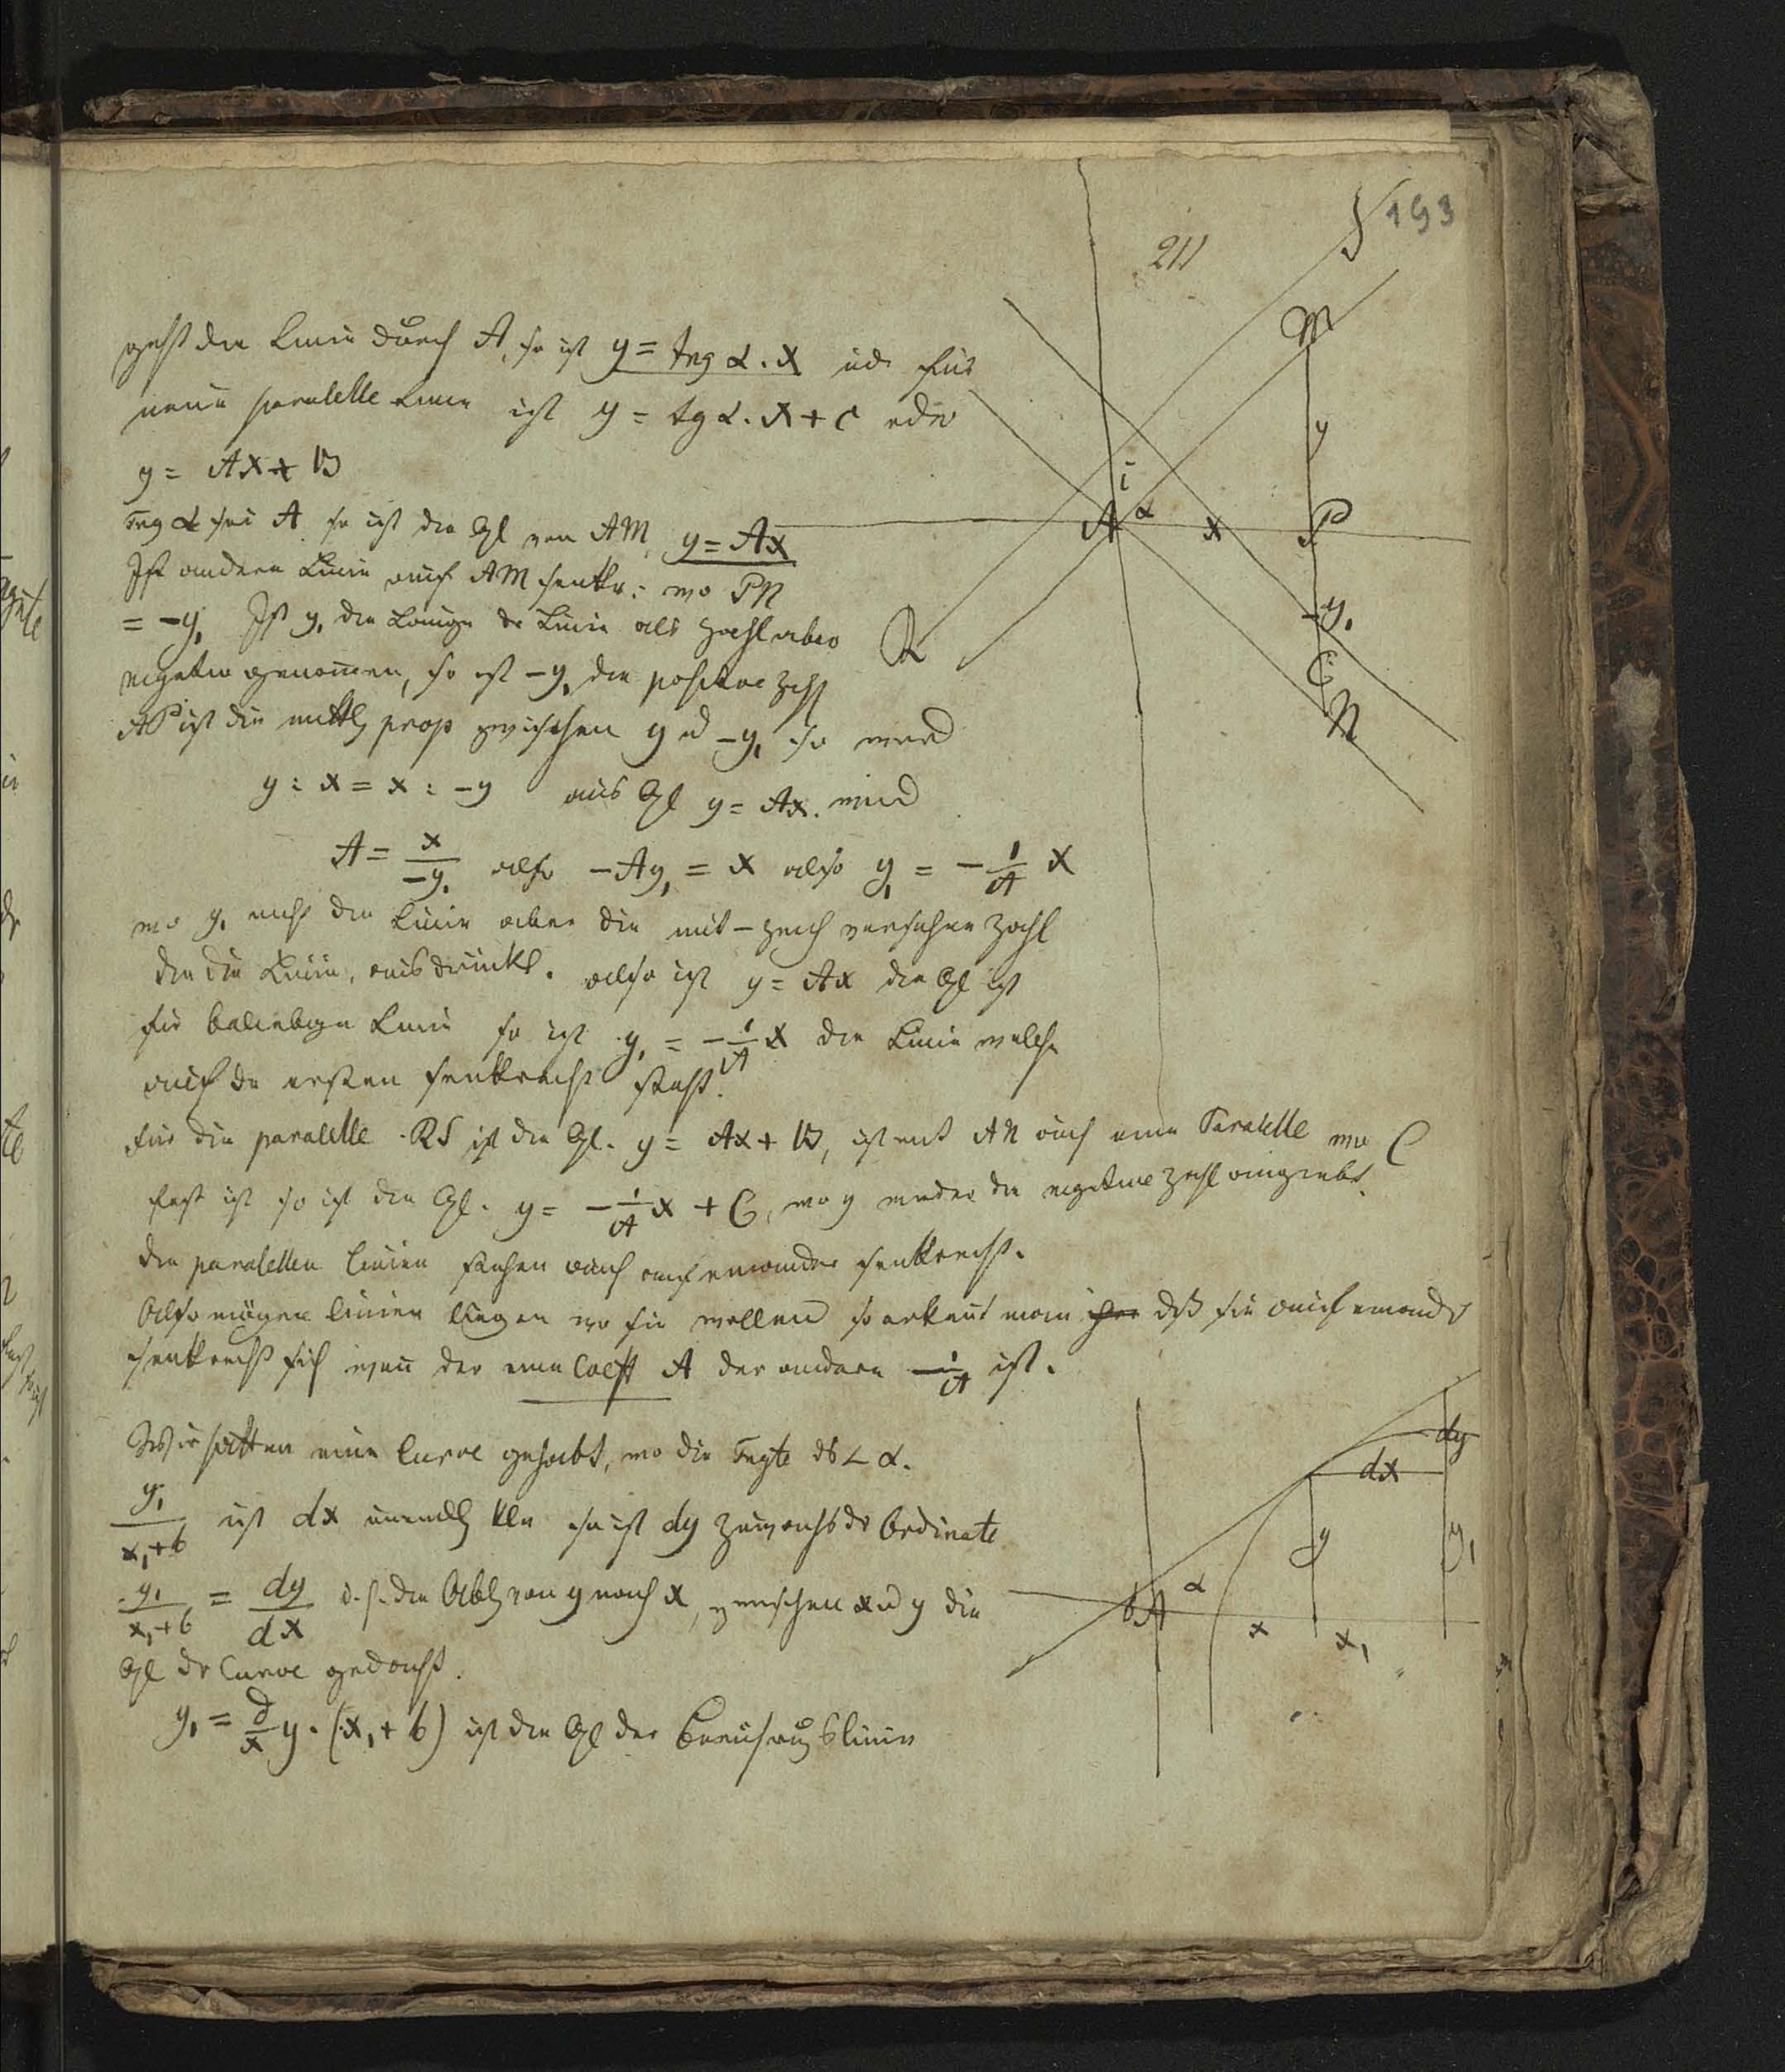 193
211
geht die Linie durch A, so ist y = tng α . x und für
eine parallele Linie ist y = tg α . x + c oder
y = Ax + B
Tng α sei A so ist die Gl von AM, y = Ax
Ist andere Linie auf AM senkr: wo PN
= -y, Ist y, die Länge der Linie als Zahl aber
negativ genommen, so ist -y, die positive Zahl
AP ist die mittl prop zwischen y u -y, so wird
y : x = x : -y aus Gl y = Ax. wird
A = x/-y, also -Ay, = x also y, = - 1/A x
wo y, nicht die Linie aber die mit - Zeich versehene Zahl
die die Linie, ausdrückt. also ist y = Ax die Gl ist
für beliebige Linie so ist y, = - 1/A x die Linie welche
auf der ersten senkrecht steht.
für die parallele RS ist die Gl. y = Ax + B, ist mit AN auch eine Paralelle wo C
fest ist so ist die Gl. y = - 1/A x + C, wo y wieder die negative Zahl angiebt.
die parallelen Linien stehen auch auf einander senkrecht.
Also mögen Linien liegen wo sie wollen so erkennt man daß sie auf einander
senkrecht sind wenn der eine Coeff A der andere - 1/A ist.
Wir hatten eine Curve gehabt, wo die Tngte db ∠ α.
y,/x,+b ist dx unendl kln so ist dy Zuwachs dr Ordinate
y,/x,+b = dy/dx d. h. die Abl von y nach x, zwischen x u y die
Gl dr Curve gedacht.
y, = d/x y . (x, + b) ist die Gl der Berührungslinie
S
M
y
i
A α x P
-y,
R
C
N
dy
dx
y
y,
b A α
x
x,